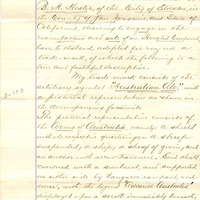 B. H. Foster, of the City of Stockton, in
the County of San Joaquin, and State of
California, desiring to engage in the
manufacture and sale of an Aerated Beverage,
has adopted for my use a trade
mark, of which the following is a
true and faithful description.
My trade mark consists of the
arbitrary symbol "Australian Ale," with
a pictorial representation as shown in
the accompanying facsimile.
The pictorial representation consists of
the Arms of Australia, namely: A shield
in the respective quarterings a sheep
suspended; a ship; a sheaf of grain;
and an anchor with arrow transverse. Said shield
crowned with a sunburst, and supported
on either side by kangaroo rampant, and
emu; with the legend "Advance Australia"
displayed upon a scroll immediately beneath;